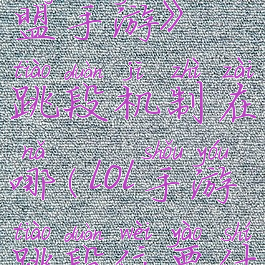 盟手游》
tiào duàn jī zhì zài
跳段机制在
nǎ shǒu yóu
哪(lol手游
tiào duàn wèi yào shí
跳段位要什